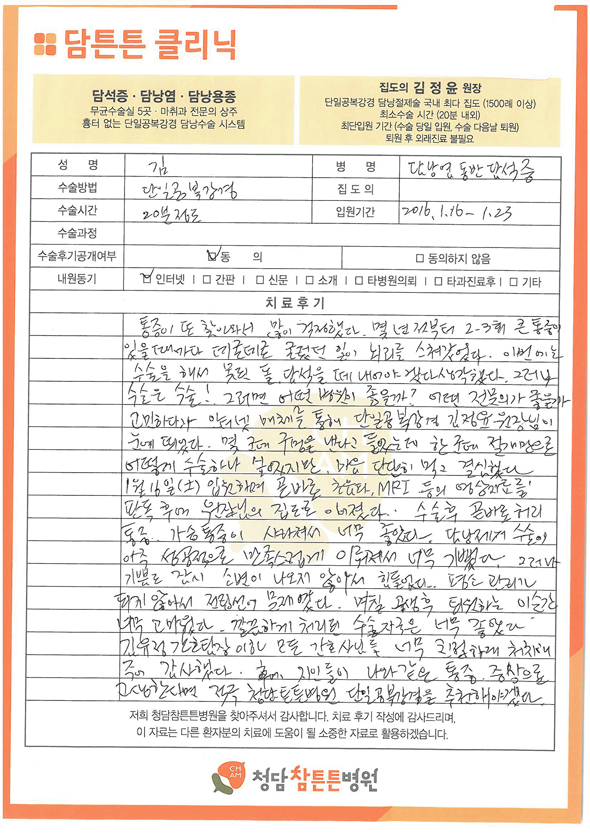 담튼튼 클리닉
담석증 · 담낭염 · 담낭용종
무균수술실 5곳 · 마취과 전문의 상주
흉터 없는 단일공복강경 담낭수술 시스템
집도의 김정윤 원장
단일공복강경 담낭절제술 국내 최다 집도 (1500례 이상)
최소수술 시간 (20분 내외)
최단입원 기간 (수술 당일 입원, 수술 다음날 퇴원)
퇴원 후 외래진료 불필요
성 명 김 병 명 담낭염 동반 담석증
수술방법 단일공복강경 집 도 의
수술시간 20분정도 입원기간 2016. 1.16 ~ 1.23
수술과정
수술후기공개여부 ☑ 동 의 □ 동의하지 않음
내원동기 ☑ 인터넷 | □ 간판 | □ 신문 | □ 소개 | □ 타병원의뢰 | □ 타과진료후 | □ 기타
치 료 후 기
통증이 또 찾아와서 많이 걱정했다. 몇 년 전부터 2-3회 큰 통증이
있을때마다 데굴데굴 굴렀던 일이 뇌리를 스쳐갔었다. 이번에는
수술을 해서 못된 돌 담석을 떼내어야 겠다 생각했다. 그러나
수술은 수술! 그러면 어떤 병원이 좋을까? 어떤 전문의가 좋을까
고민하다가 인터넷 매체를 통해 단일공복강경 김정윤 원장님이
눈에 띄었다. 몇 군데 구멍을 낸다고 들었는데 한 군데 절개만으로
어떻게 수술하나 싶었지만, 마음 단단히 먹고 결심했다.
1월 16일(土) 입원하며 곧바로 초음파, MRI 등의 영상자료를
판독 후에 원장님의 집도로 이어졌다. 수술후 곧바로 허리
통증, 가슴통증이 사라져서 너무 좋았다. 담낭제거 수술이
아주 성공적으로 만족스럽게 이뤄져서 너무 기뻤다. 그러나
기쁨도 잠시 소변이 나오지 않아서 힘들었다. 평소 관리가
되지 않아서 전립선이 문제였다. 며칠 고생후 퇴원하는 이순간
너무 고마웠다. 깔끔하게 처리된 수술자국은 너무 좋았다.
간호팀장 이하 모든 간호사님들 너무 친절하게 처치해
주어 감사했다. 후에 지인들이 나와같은 통증, 증상으로
고생한다면 적극 청담튼튼병원 단일공복강경을 추천해야겠다.
저희 청담참튼튼병원을 찾아주셔서 감사합니다. 치료 후기 작성에 감사드리며,
이 자료는 다른 환자분의 치료에 도움이 될 소중한 자료로 활용하겠습니다.
CHAM 청담참튼튼병원